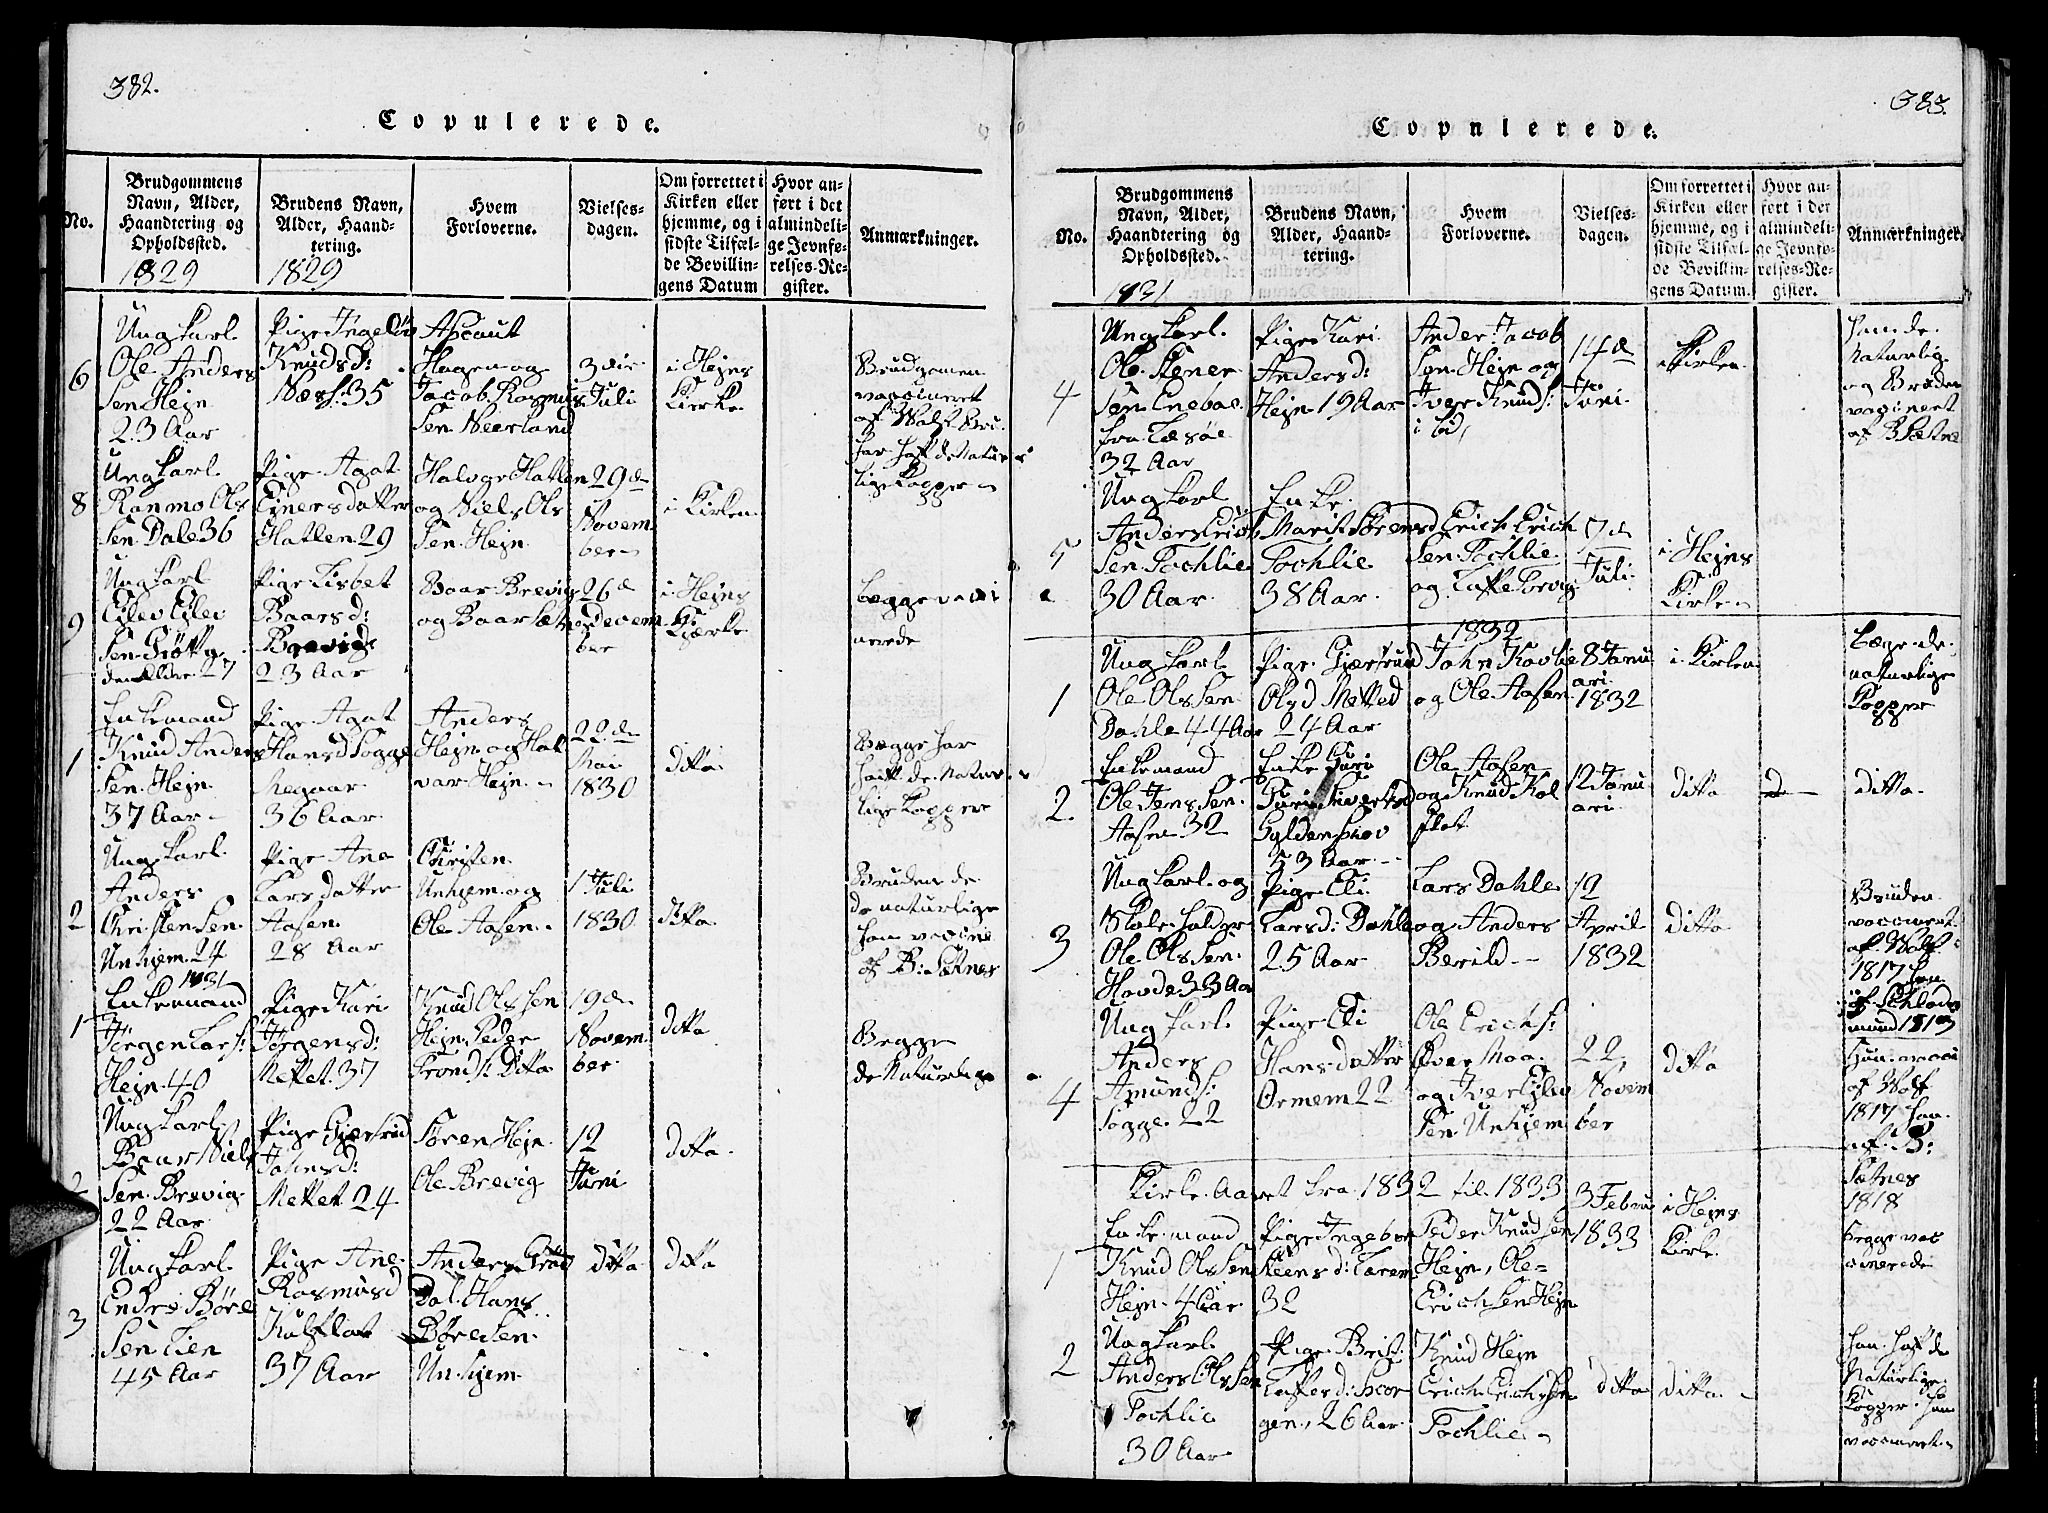 382.
Copulerede.
No.
Brudgommens Navn, Alder, Haandtering og Opholdssted.
1829
Brudens Navn, Alder, Haandtering.
1829
Hvem Forloverne.
Vielsesdagen.
Om forrettet i Kirken eller hjemme, og i sidste Tilfælde Bevillingens Datum
Hvor anført i det almindelige Jevnførelses-Register.
Anmærkninger.
6
Ung Karl
Ole Anders
Sen Hejn
23 Aar
Pige Ingeløv
Knudsd:
Næss: 35
Ascaut
Hagen og
Jacob Rasmus
Sen Neerland
3die
Juli
i Hejns
Kirke
Brudgomen
vaccineret
af Wolf
har haft de Natur
lige Kopper
8
Ung Karl
Ranmo Ols
Sen Dale 36
Pige Agat
Einersdatter
Hatlen 29
Halvor Hatlen
og Niels Ols
Sen Hejn
29de
Novem
ber
i Kirken
9
Ung Karl
Eilev Eilev
Sen Grøtta
den Eldre 27
Pige Lisbet
Baarsd:
Brevig
23 Aar
Baar Brevig
og Baar Sætn
26de
Devem
ber
i Hejns
Kjærke
begge vacci
nerede
1
Enkemand
Knud Anders
Sen Hejn
37 Aar
Pige Agat
Hansd Sogge
Negaar
36 Aar
Anders
Hejn og Hal
var Hejn
22de
Mai
1830
ditto
Begge har
haft de Natur
lige Kopper
2
Ung Karl
Anders
Christensen
Unhjem 24
Pige Ane
Larsdatter
Aasen
28 Aar
Christen
Unhjem og
Ole Aasen
1 Juli
1830
ditto
Bruden de
de naturlige
han vaccine
af B: Sætnes
1831
1
Enkemand
Jørgen Lars:
Hejn 40
Pige Kari
Jørgensd:
Mettet 37
Knud Olssen
Hejn Peder
Tronds: Ditto
19de
Novem
ber
ditto
Begge
de Naturlige
2
Ung Karl
Baar Niels
Sen Brevig
22 Aar
Pige Gjertrud
Johnsd:
Mettet 24
Søren Hejn
Ole Brevig
12
Juni
ditto
3
Ung Karl
Endre Børe
Sen Lien
45 Aar
Pige Ane
Rasmusd
Kulflat
37 Aar
Anders Grøv
Dal Hans
Børesen
Unhjem
ditto
ditto
383.
Copnlerede.
No.
Brudgommens Navn, Alder, Haandtering og Opholdssted.
1831
Brudens Navn, Alder, Haandtering.
Hvem Forloverne.
Vielsesdagen.
Om forrettet i Kirken eller hjemme, og i sidste Tilfælde Bevillingens Datum.
Hvor anført i det almindelige Jevnførelses-Register.
Anmærkninger.
4
Ung Karl
Ole Stener
Sen Eneboe
fra Lesøe
32 Aar
Pige Kari
Andersd:
Hejn 19 Aar
Ander Jacob
Sen Hejn og
Iver Knuds:
ibid,
14de
Juni
i Kirken
han de
Naturlig
og Bruden
vacinert
af B Sætne
5
Ung Karl
Anders Erich
Sen Fochlie
30 Aar
Enke
Marit Sørensd
Fochlie
38 Aar
Erich Erich
Sen Fochlie
og Laffe Torvig
7de
Juli
i Hejns
Kirke
1832
1
Ung Karl
Ole Olssen
Dahle 44 Aar
Pige Gjertrud
Olsd Metted
24 Aar
John Kovlie
og Ole Aasen
8 Janu
ari
1832
i Kirken
Begge de
naturlige
Kopper
2.
Enkemand
Ole Jenssen
Aasen 32
Enke Guri
Guri Siverted
Gyldenskov
53 Aar
Ole Aasen
og Knud Kol
flot
12 Janu
ari
ditto
ditto
3
Ung Karl og
Skoleholder
Ole Olssen
Hovde 33 Aar
Pige Eli
Larsd: Dahle
25 Aar
Lars Dahle
og Anders
Berild
12
April
1832
ditto
Bruden
vaccinert
af Wolf
1817 han
mund 1813
4
Ung Karl
Anders
Amunds:
Sogge 22
Pige Eli
Hansdatter
Ormem 22
Ole Erichs:
Øver Moa
og Iver Eilev
Sen Unhjem
22
Novem
ber
ditto
Hun vacci
af Wolf
1817 han
af B:
Sætnes
1818
Kirke Aaret fra 1832 til 1833
1
Enkemand
Knud Olssen
Hejn 40 Aar
Pige Ingebor
Steensd: Larem
32
Peder Knudsen
Hejn, Ole
Erichsen Hejn
3 Febru
1833
i Hejns
Kirke
begge vac
cinerede
2
Ung Karl
Anders Olssen
Fochlie
30 Aar
Pige Brit:
Laffesd: Skor
gen, 26 Aar
Knud Hejn
Erich Erichsen
Fochlie
ditto
ditto
han haft de
Naturlige
Kopper hun
vaccineret